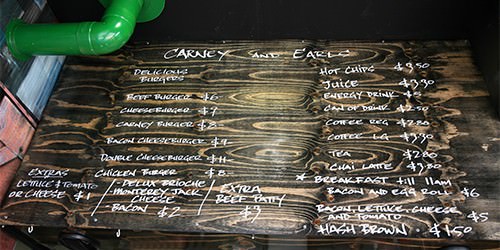 CARNEY AND EARLS
DELICIOUS
BURGERS
BEEF BURGER $6
CHEESEBURGER $7
CARNEY BURGER $
BACON CHEESEBURGER $9
DOUBLE CHEESEBURGER $11
CHICKEN BURGER $8
EXTRAS
LETTUCE & TOMATO
OR CHEESE $1
- DELUX BRIOCHE
MONTEREY JACK
CHEESE
BACON $2
EXTRA
BEEF PATTY
$3
HOT CHIPS $3.50
JUICE $3.30
ENERGY DRINK $5
CAN OF DRINK $2.50
COFFEE REG $2.80
COFFEE LG $3.30
TEA $2.80
CHAI LATTE $3.80
* BREAKFAST till 11am
BACON AND EGG ROLL $6
BACON, LETTUCE, CHEESE
AND TOMATO $5
HASH BROWN $1.50